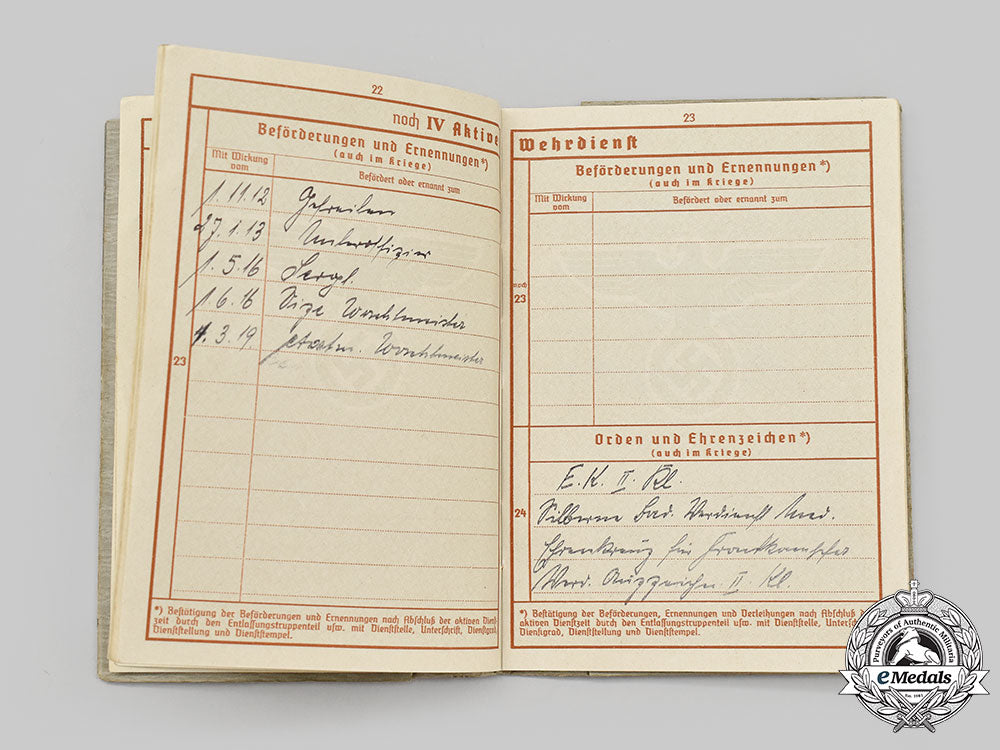 22
noch IV Aktive
Beförderungen und Ernennungen*)
(auch im Kriege)
Mit Wirkung vom
Befördert oder ernannt zum
1.11.12 Gefreiten
27.1.13 Unteroffizier
1.5.16 Sergt.
1.6.16 Vize Wachtmeister
1.3.19 etatm. Wachtmeister
23
*) Bestätigung der Beförderungen und Ernennungen nach Abschluß der aktiven Dienst-
zeit durch den Entlassungstruppenteil usw. mit Dienststelle, Unterschrift, Dienstgrad,
Dienststellung und Dienststempel.
23
Wehrdienst
Beförderungen und Ernennungen*)
(auch im Kriege)
Mit Wirkung vom
Befördert oder ernannt zum
noch
23
Orden und Ehrenzeichen*)
(auch im Kriege)
E.K. II. Kl.
24
Silberne Bad. Verdienst Med.
Ehrenkreuz für Frontkämpfer
Verd. Auszeichn. II. Kl.
*) Bestätigung der Beförderungen, Ernennungen und Verleihungen nach Abschluß der
aktiven Dienstzeit durch den Entlassungstruppenteil usw. mit Dienststelle, Unterschrift,
Dienstgrad, Dienststellung und Dienststempel.
Purveyors of Authentic Militaria
eMedals